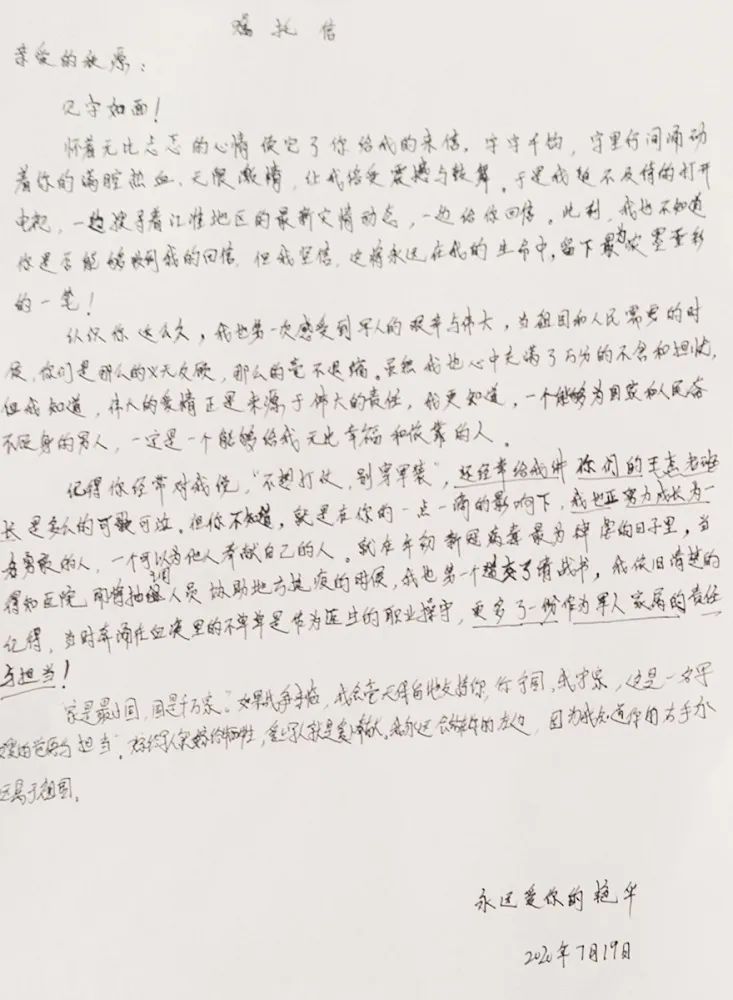 嘱托信
亲爱的秋源：
见字如面！
怀着无比忐忑的心情读完了你给我的来信，字字千钧，字里行间涌动
着你的满腔热血、无限激情，让我倍受震撼与鼓舞。于是我迫不及待的打开
电视，一边搜寻着江淮地区的最新灾情动态，一边给你回信。此刻，我也不知道
你是否能够收到我的回信，但我坚信，这将永远在我的生命中，留下最为浓墨重彩
的一笔！
认识你这么久，我也第一次感受到军人的艰辛与伟大，当祖国和人民需要的时
候，你们是那么的义无反顾，那么的毫不退缩。虽然我也心中充满了万分的不舍和担忧，
但我知道，伟大的爱情正是来源于伟大的责任，我更知道，一个能够为国家和人民奋
不顾身的男人，一定是一个能够给我无比幸福和依靠的人。
记得你经常对我说，“不想打仗，别穿军装”，还经常给我讲你们的王杰老班
长是多么的可歌可泣。但你不知道，就是在你的一点一滴的影响下，我也正努力成长为一
名勇敢的人，一个可以为他人奉献自己的人。就在年初新冠病毒最为肆虐的日子里，当
得知医院即将抽调人员协助地方抗疫的时候，我也第一个递交了请战书，我依旧清楚的
记得，当时奔涌在血液里的不单单是作为医生的职业操守，更多了一份作为军人家属的责任
与担当！
“家是最小国，国是千万家。”如果战争来临，我会毫无保留地支持你，你守国，我守家，这是一名军
嫂的 与担当。 爱军人就是爱奉献。我永远会站在你的左边，因为我知道你的右手永
远属于祖国。
永远爱你的艳华
2020年7月19日